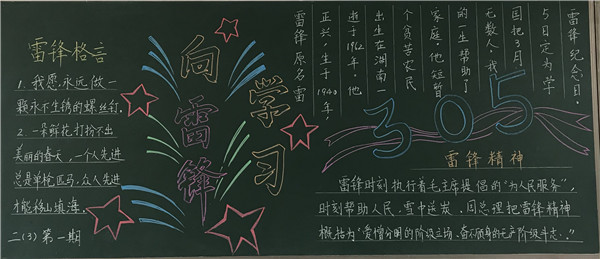 雷锋格言
1. 我愿永远做一
颗永不生锈的螺丝钉.
2. 一朵鲜花打扮不出
美丽的春天，一个人先进
总是单枪匹马，众人先进
才能移山填海.
二(3) 第一期
向雷锋
学习
雷锋原名雷
正兴，生于1940年
逝于1962年，他
出生在湖南一
个贫苦农民
家庭.他短暂
的一生帮助了
无数人.我
国把3月
5日定为学
雷锋纪念日.
305
雷锋精神
雷锋时刻执行着毛主席提倡的“为人民服务”，
时刻帮助人民、雪中送炭.周总理把雷锋精神
概括为“爱憎分明的阶级立场、奋不顾身的无产阶级斗志..”